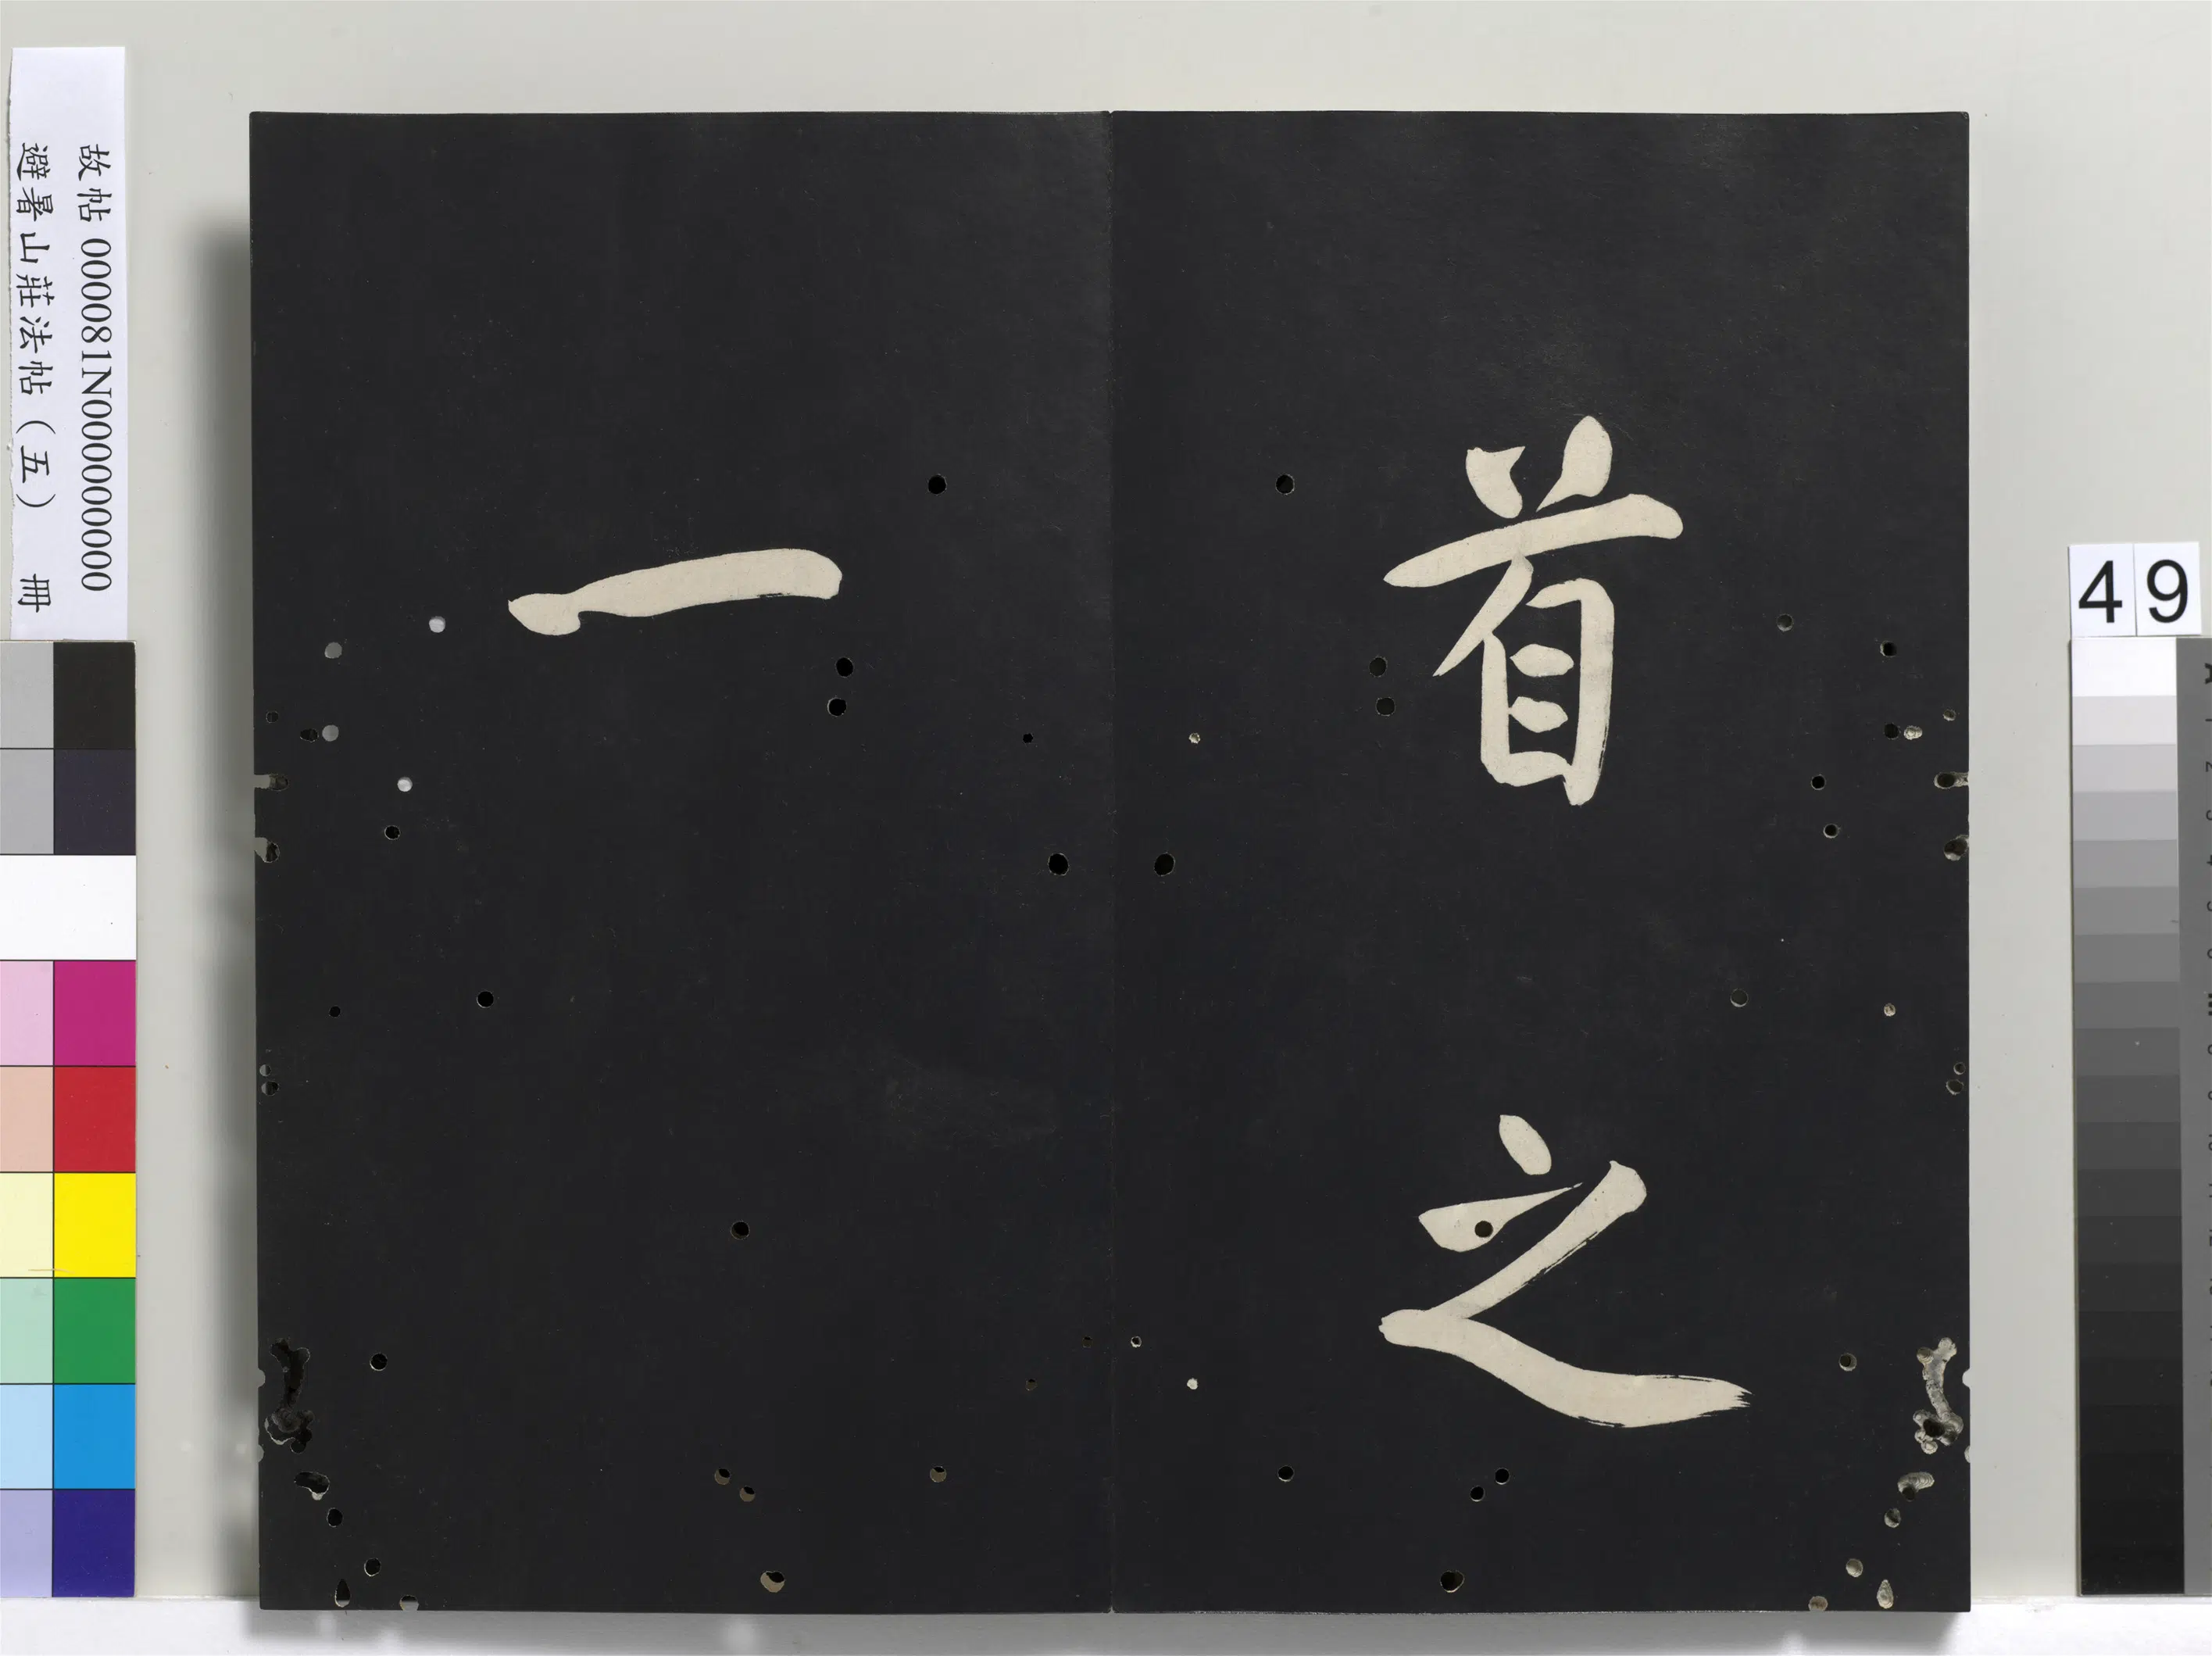 首之
一
故帖 000081N000000000
避暑山莊法帖（五） 冊
49